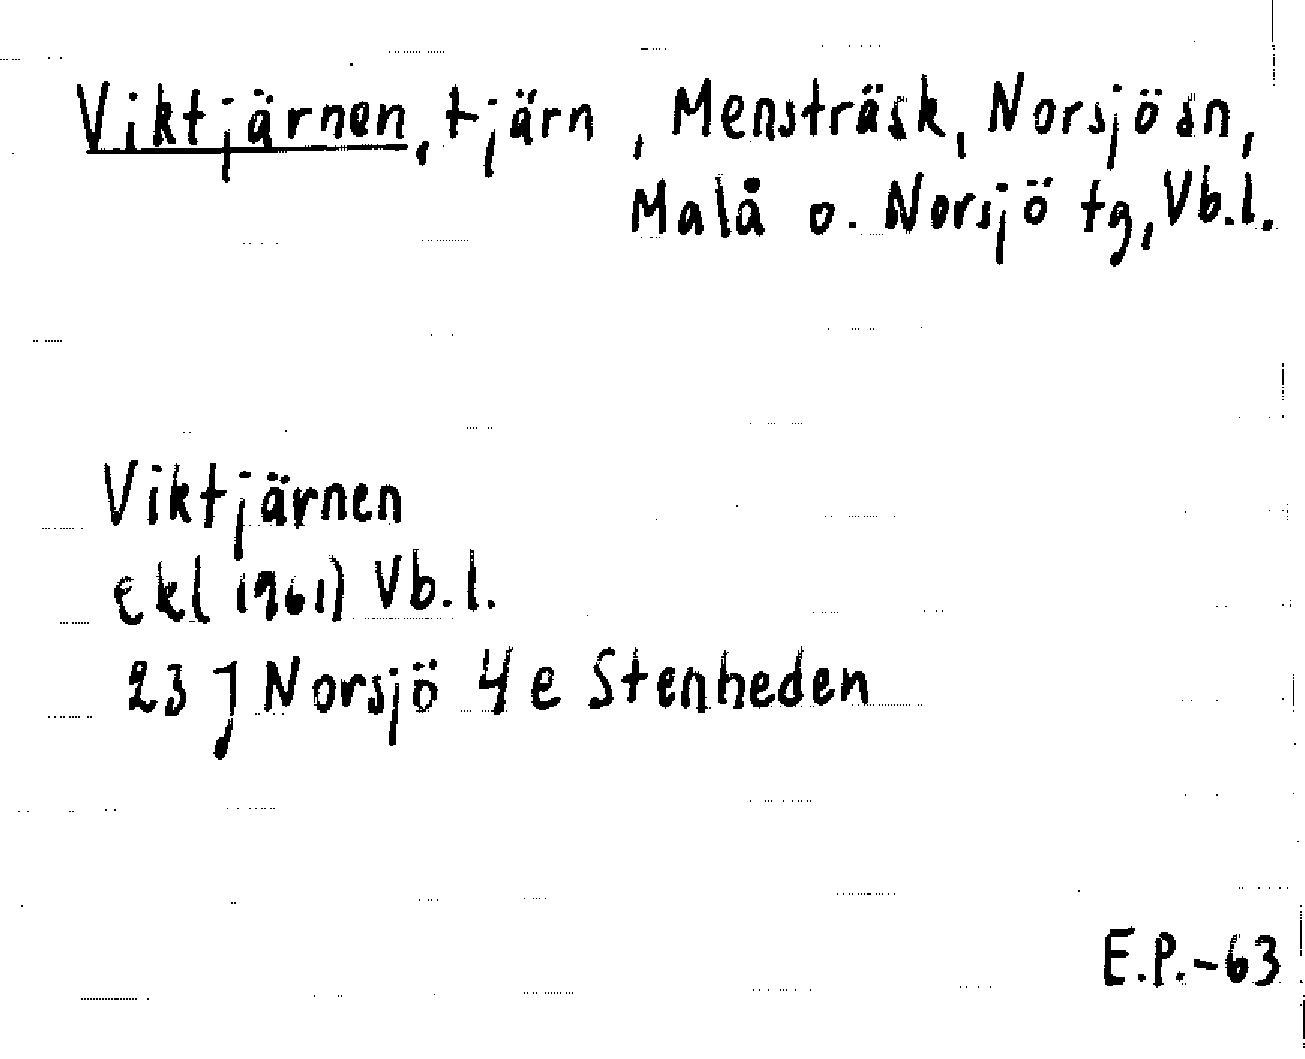 Viktjärnen, tjärn, Mensträsk, Norsjö sn,
Malå o. Norsjö tg, Vb.l.
Viktjärnen
Ekl 1961) Vb.l.
23 J Norsjö 4 e Stenheden
E.P.-63